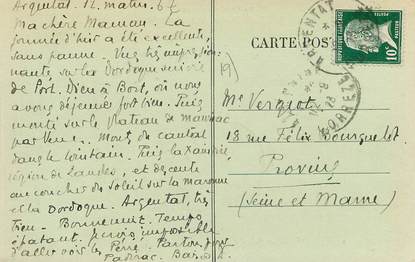 Argentat. 12. matin. 6h
Ma chère Maman. La
journée d'hier a été excellente,
sans panne. Vue très impression-
nante sur la Dordogne suivie
de Port-Dieu à Bort, où nous
avons déjeuné fort bien. Puis
monté sur le plateau de Mauriac
par Vence. Monts du Cantal
dans le lointain. Puis la Xaintrie,
région de landes, et descente
au coucher du soleil sur la Maronne
et la Dordogne. Argentat, très
bien. Bonne nuit. Temps
épatant. impossible
d'aller voir les Perré. Partons pour
Padirac. Bais.
CARTE POS
ARGENTAT
CORRÈZE
10c
19)
Me Vergnot
18 rue Félix Bourquelot.
Provins
(Seine et Marne)